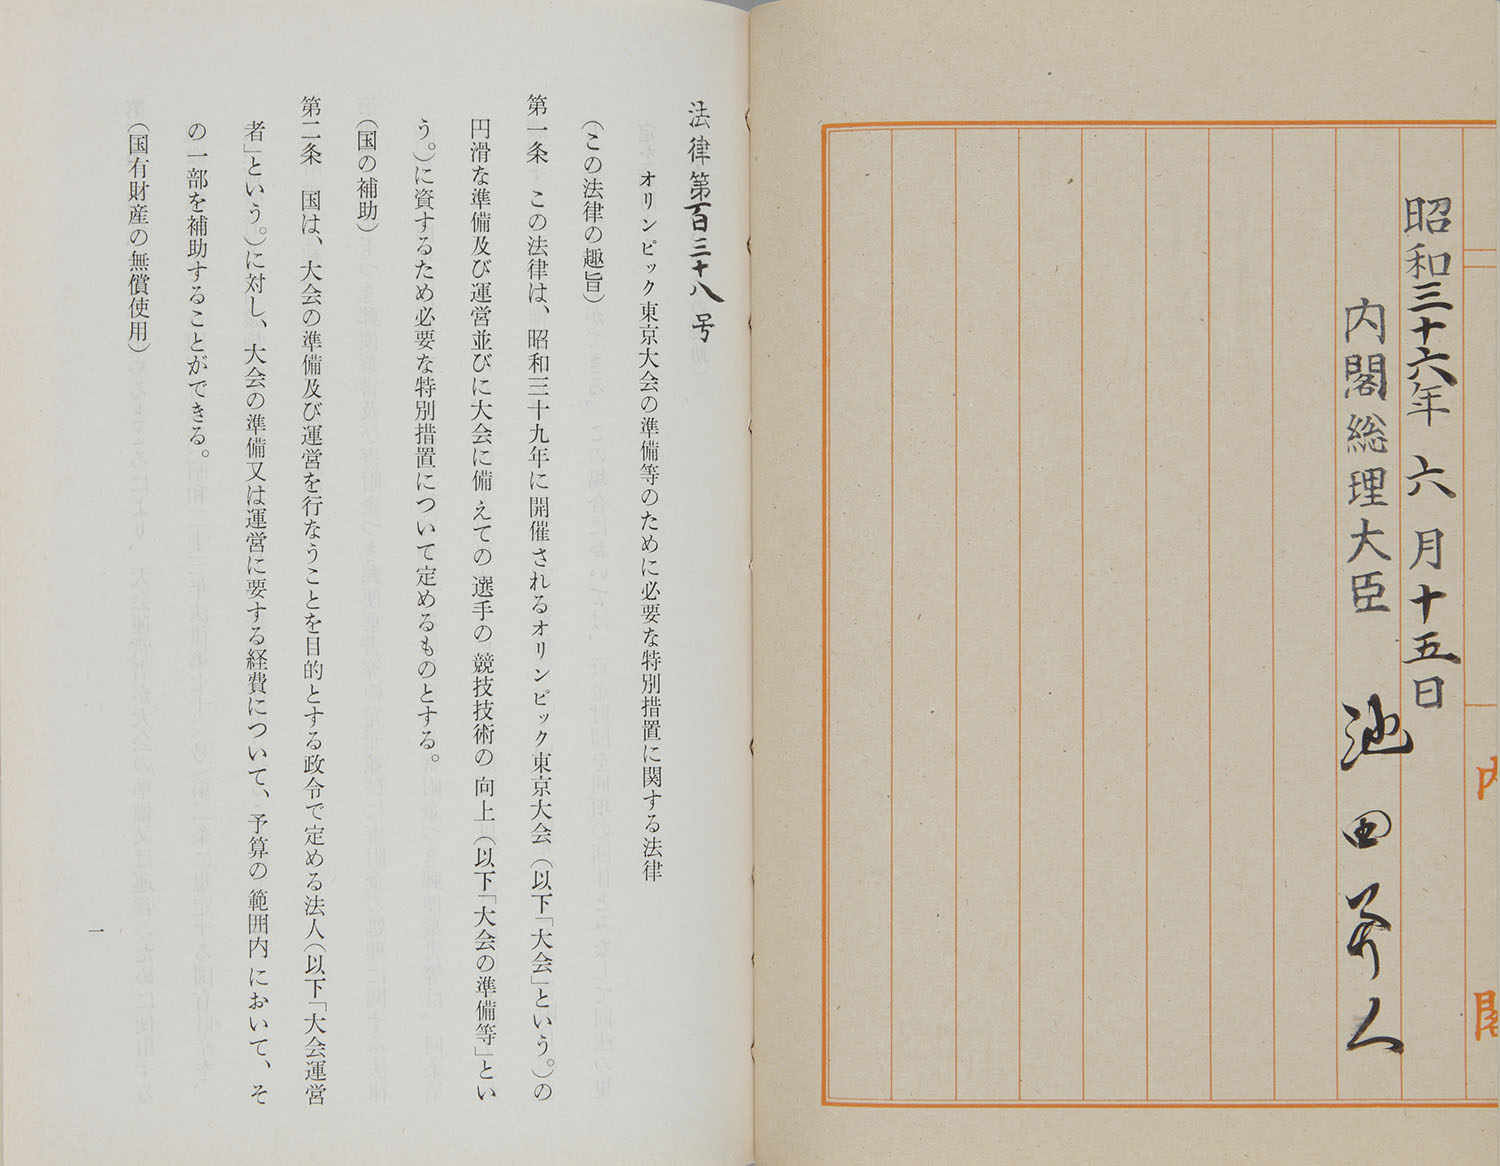 昭和三十六年 六月十五日
内閣総理大臣 池田勇人
内閣
法律第百三十八号
オリンピック東京大会の準備等のために必要な特別措置に関する法律
(この法律の趣旨)
第一条 この法律は、昭和三十九年に開催されるオリンピック東京大会(以下「大会」という。)の
円滑な準備及び運営並びに大会に備えての選手の競技技術の向上(以下「大会の準備等」とい
う。)に資するため必要な特別措置について定めるものとする。
(国の補助)
第二条 国は、大会の準備及び運営を行なうことを目的とする政令で定める法人(以下「大会運営
者」という。)に対し、大会の準備又は運営に要する経費について、予算の範囲内において、そ
の一部を補助することができる。
(国有財産の無償使用)
一